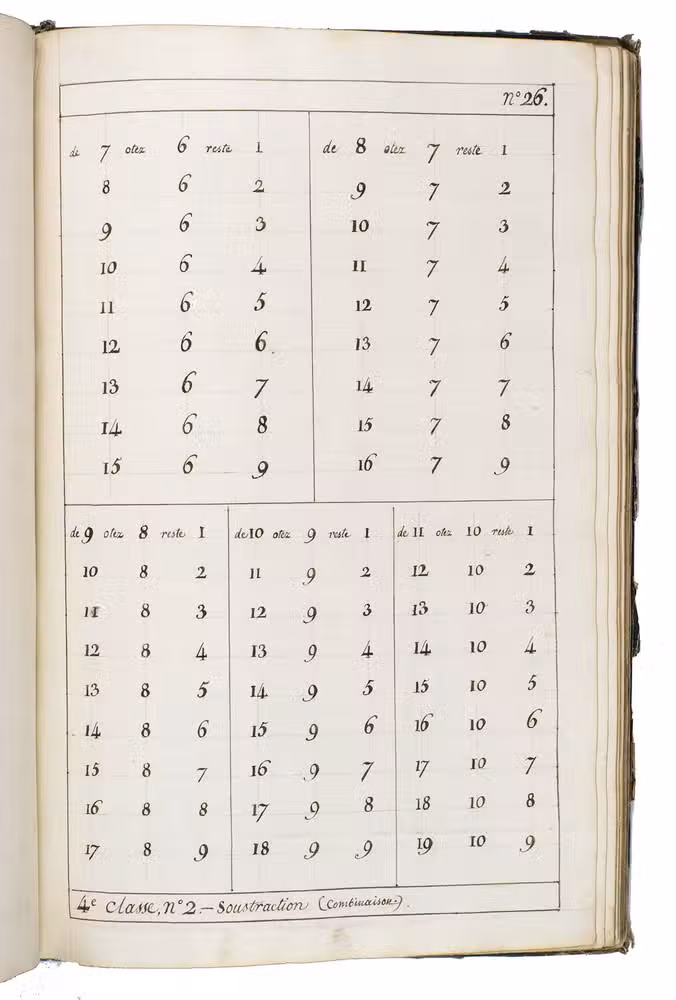 n° 26.
de 7 otez 6 reste 1
8 6 2
9 6 3
10 6 4
11 6 5
12 6 6
13 6 7
14 6 8
15 6 9
de 8 otez 7 reste 1
9 7 2
10 7 3
11 7 4
12 7 5
13 7 6
14 7 7
15 7 8
16 7 9
de 9 otez 8 reste 1
10 8 2
11 8 3
12 8 4
13 8 5
14 8 6
15 8 7
16 8 8
17 8 9
de 10 otez 9 reste 1
11 9 2
12 9 3
13 9 4
14 9 5
15 9 6
16 9 7
17 9 8
18 9 9
de 11 otez 10 reste 1
12 10 2
13 10 3
14 10 4
15 10 5
16 10 6
17 10 7
18 10 8
19 10 9
4e Classe, n° 2.— Soustraction (Combinaison).